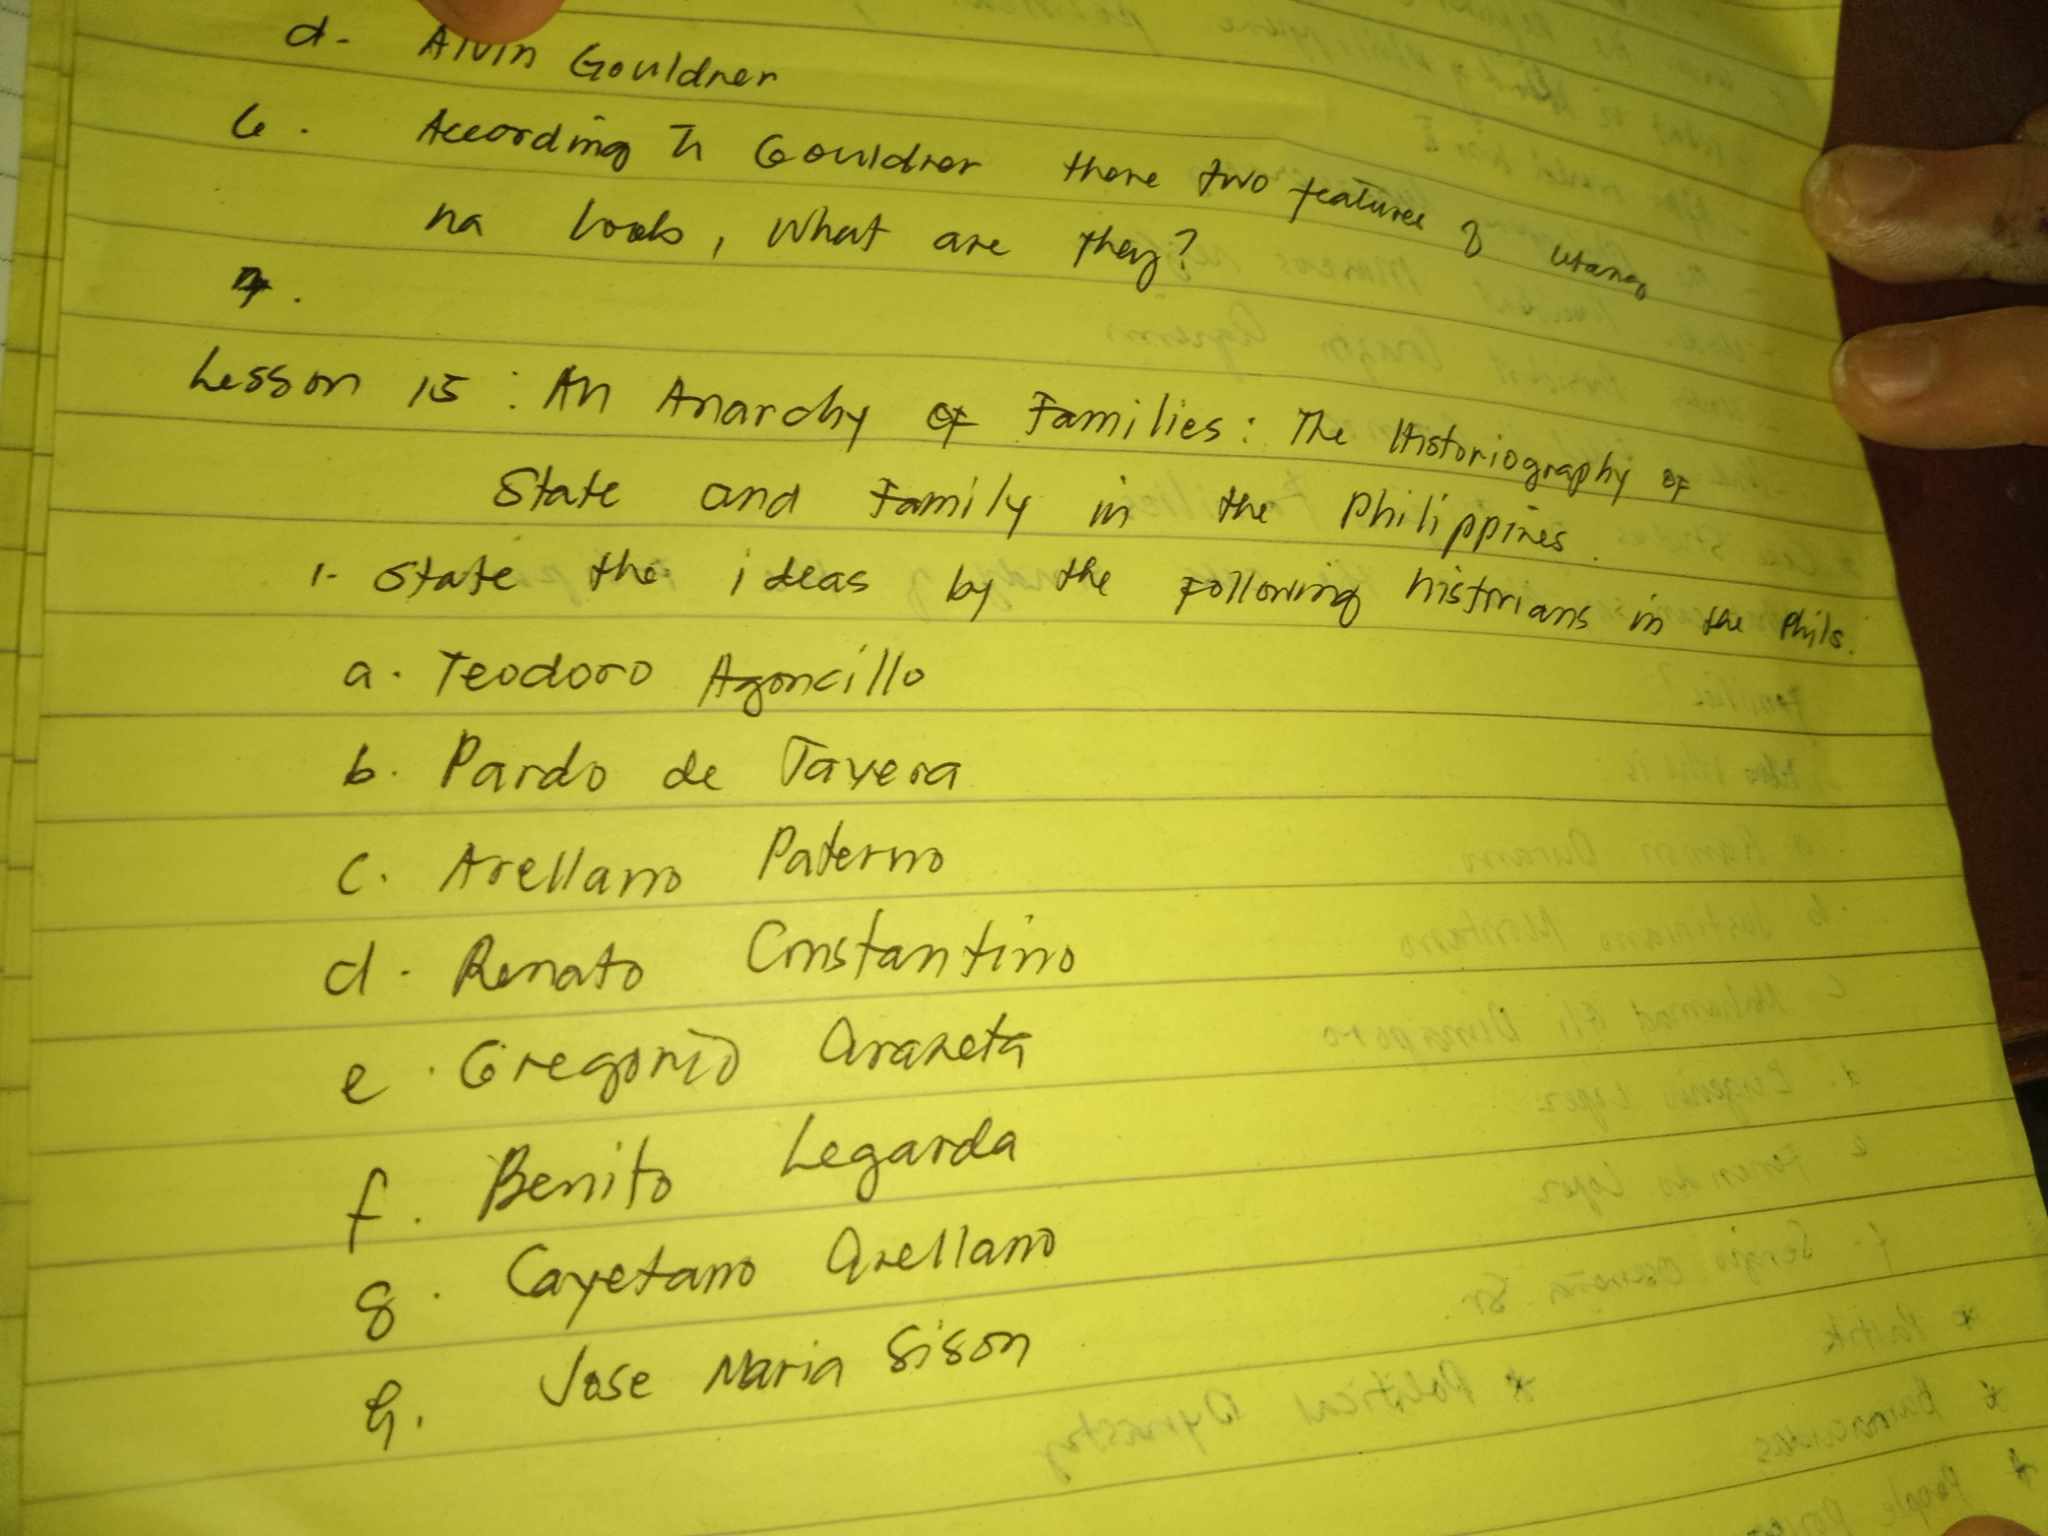 d. Alvin Gouldner
6. According to Gouldner there two features of utang
na loob, what are they?
Lesson 15: An Anarchy of Families: The Historiography of
State and Family in the Philippines.
1. State the ideas by the following historians in the Phils.
a. Teodoro Agoncillo
b. Pardo de Tavera
c. Arellano Paterno
d. Renato Constantino
e. Gregorio Araneta
f. Benito Legarda
g. Cayetano Arellano
h. Jose Maria Sison